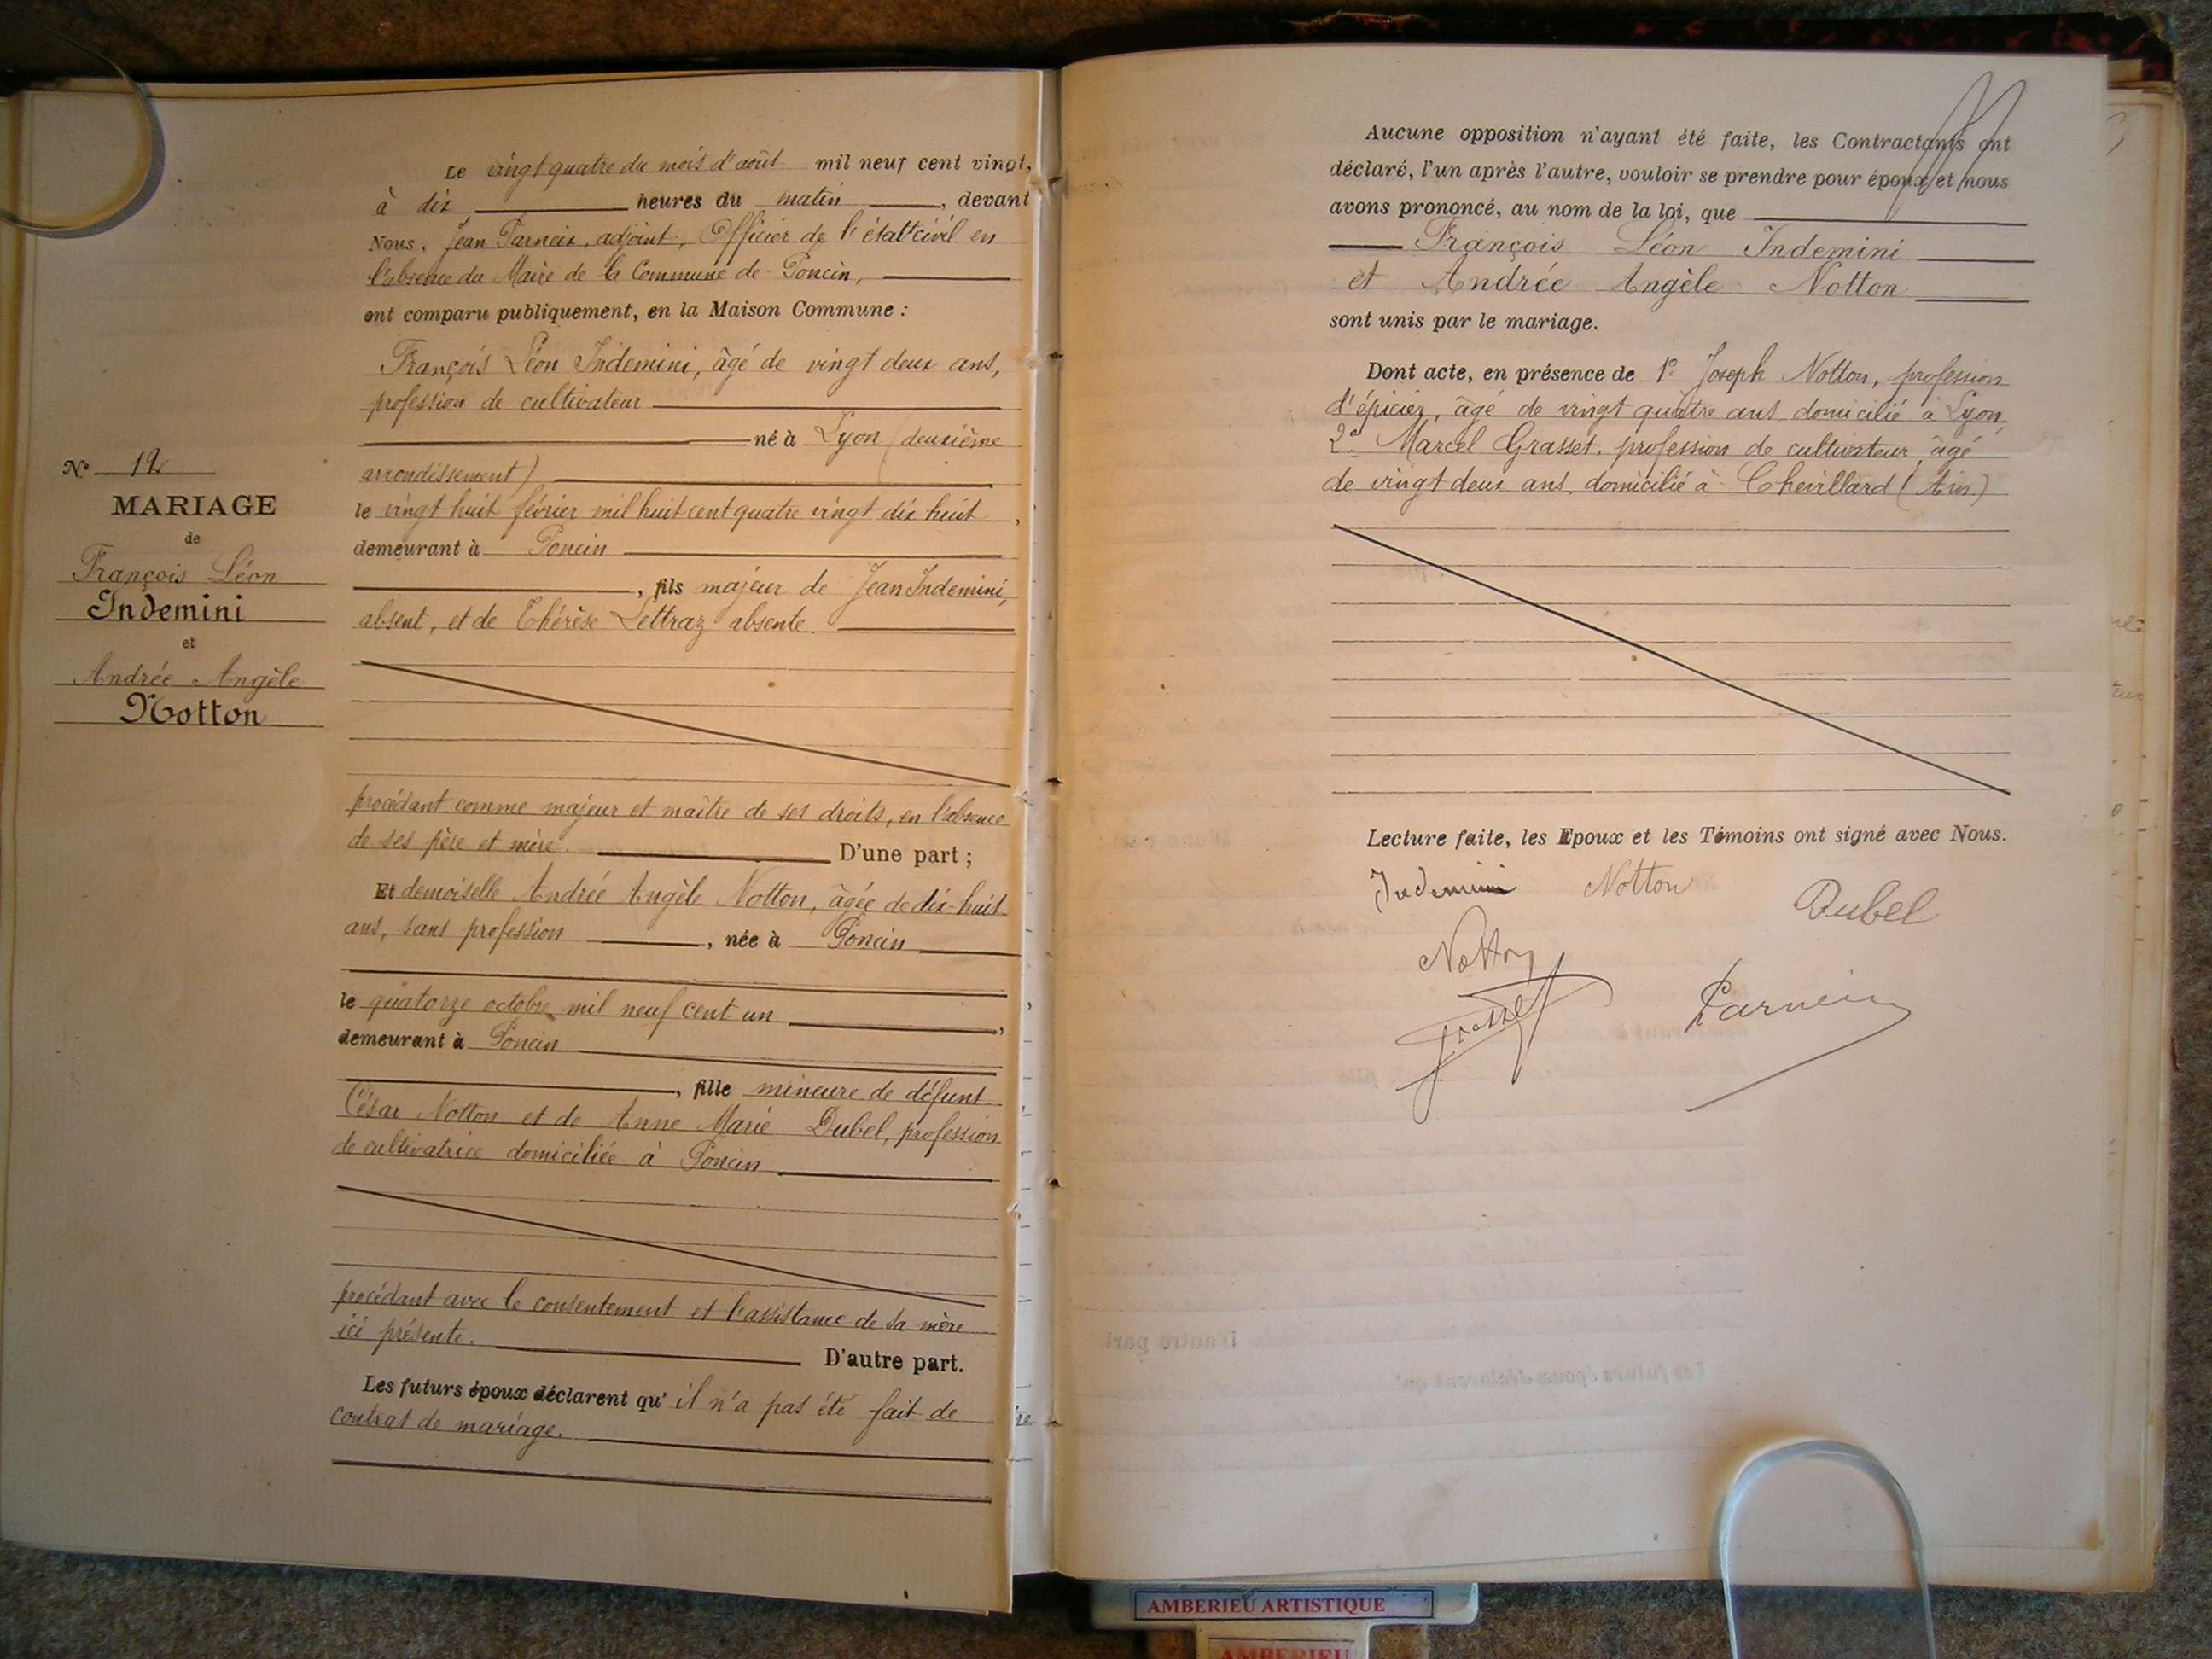 Le vingt quatre du mois d'août mil neuf cent vingt,
à dix heures du matin, devant
Nous, Jean Parneix, adjoint, Officier de l'état civil en
l'absence du Maire de la Commune de Poncin,
ont comparu publiquement, en la Maison Commune :
François Léon Indemini, âgé de vingt deux ans,
profession de cultivateur
né à Lyon (deuxième
arrondissement)
le vingt huit février mil huit cent quatre vingt dix huit,
demeurant à Poncin
, fils majeur de Jean Indemini,
absent, et de Thérèse Lettraz absente.
procédant comme majeur et maître de ses droits, en l'absence
de ses père et mère. D'une part ;
Et demoiselle Andrée Angèle Notton, âgée de dix-huit
ans, sans profession, née à Poncin
le quatorze octobre mil neuf cent un,
demeurant à Poncin
, fille mineure de défunt
César Notton et de Anne Marie Dubel, profession
de cultivatrice domiciliée à Poncin
procédant avec le consentement et l'assistance de sa mère
ici présente. D'autre part.
Les futurs époux déclarent qu'il n'a pas été fait de
contrat de mariage.
No 12
MARIAGE
de
François Léon
Indemini
et
Andrée Angèle
Notton
Aucune opposition n'ayant été faite, les Contractants ont
déclaré, l'un après l'autre, vouloir se prendre pour époux et nous
avons prononcé, au nom de la loi, que
François Léon Indemini
et Andrée Angèle Notton
sont unis par le mariage.
Dont acte, en présence de 1° Joseph Notton, profession
d'épicier, âgé de vingt quatre ans domicilié à Lyon,
2° Marcel Grasset, profession de cultivateur, âgé
de vingt deux ans, domicilié à Chevillard (Ain)
Lecture faite, les Epoux et les Témoins ont signé avec Nous.
Indemini Notton Dubel
Notton
Grasset Parneix
AMBERIEU ARTISTIQUE
AMBERIEU